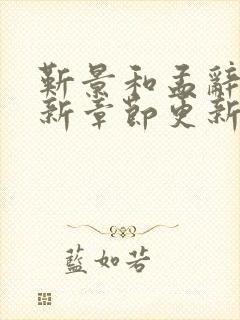 靳景和孟辭
新章節更新
藍如若